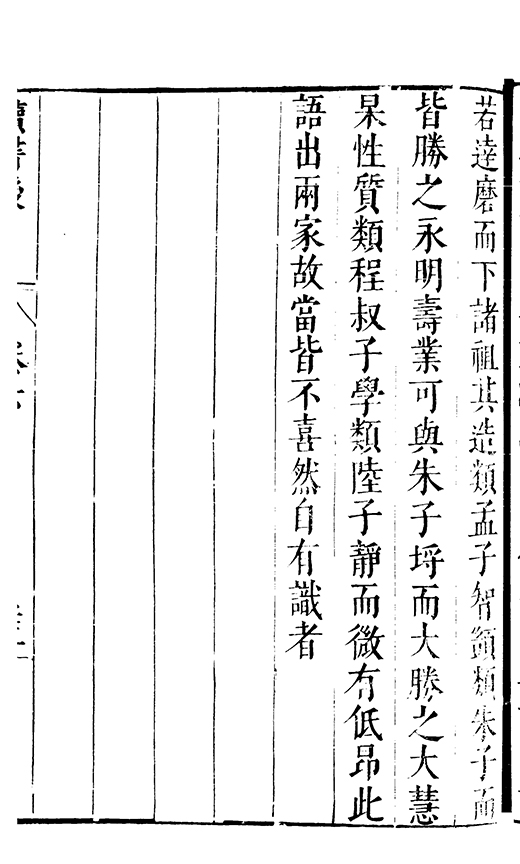 若達磨而下諸祖其造類孟子智顗類朱子而
皆勝之永明壽業可與朱子埒而大勝之大慧
杲性質類程叔子學類陸子靜而微有低昂此
語出兩家故當皆不喜然自有識者
讀書後
卷六